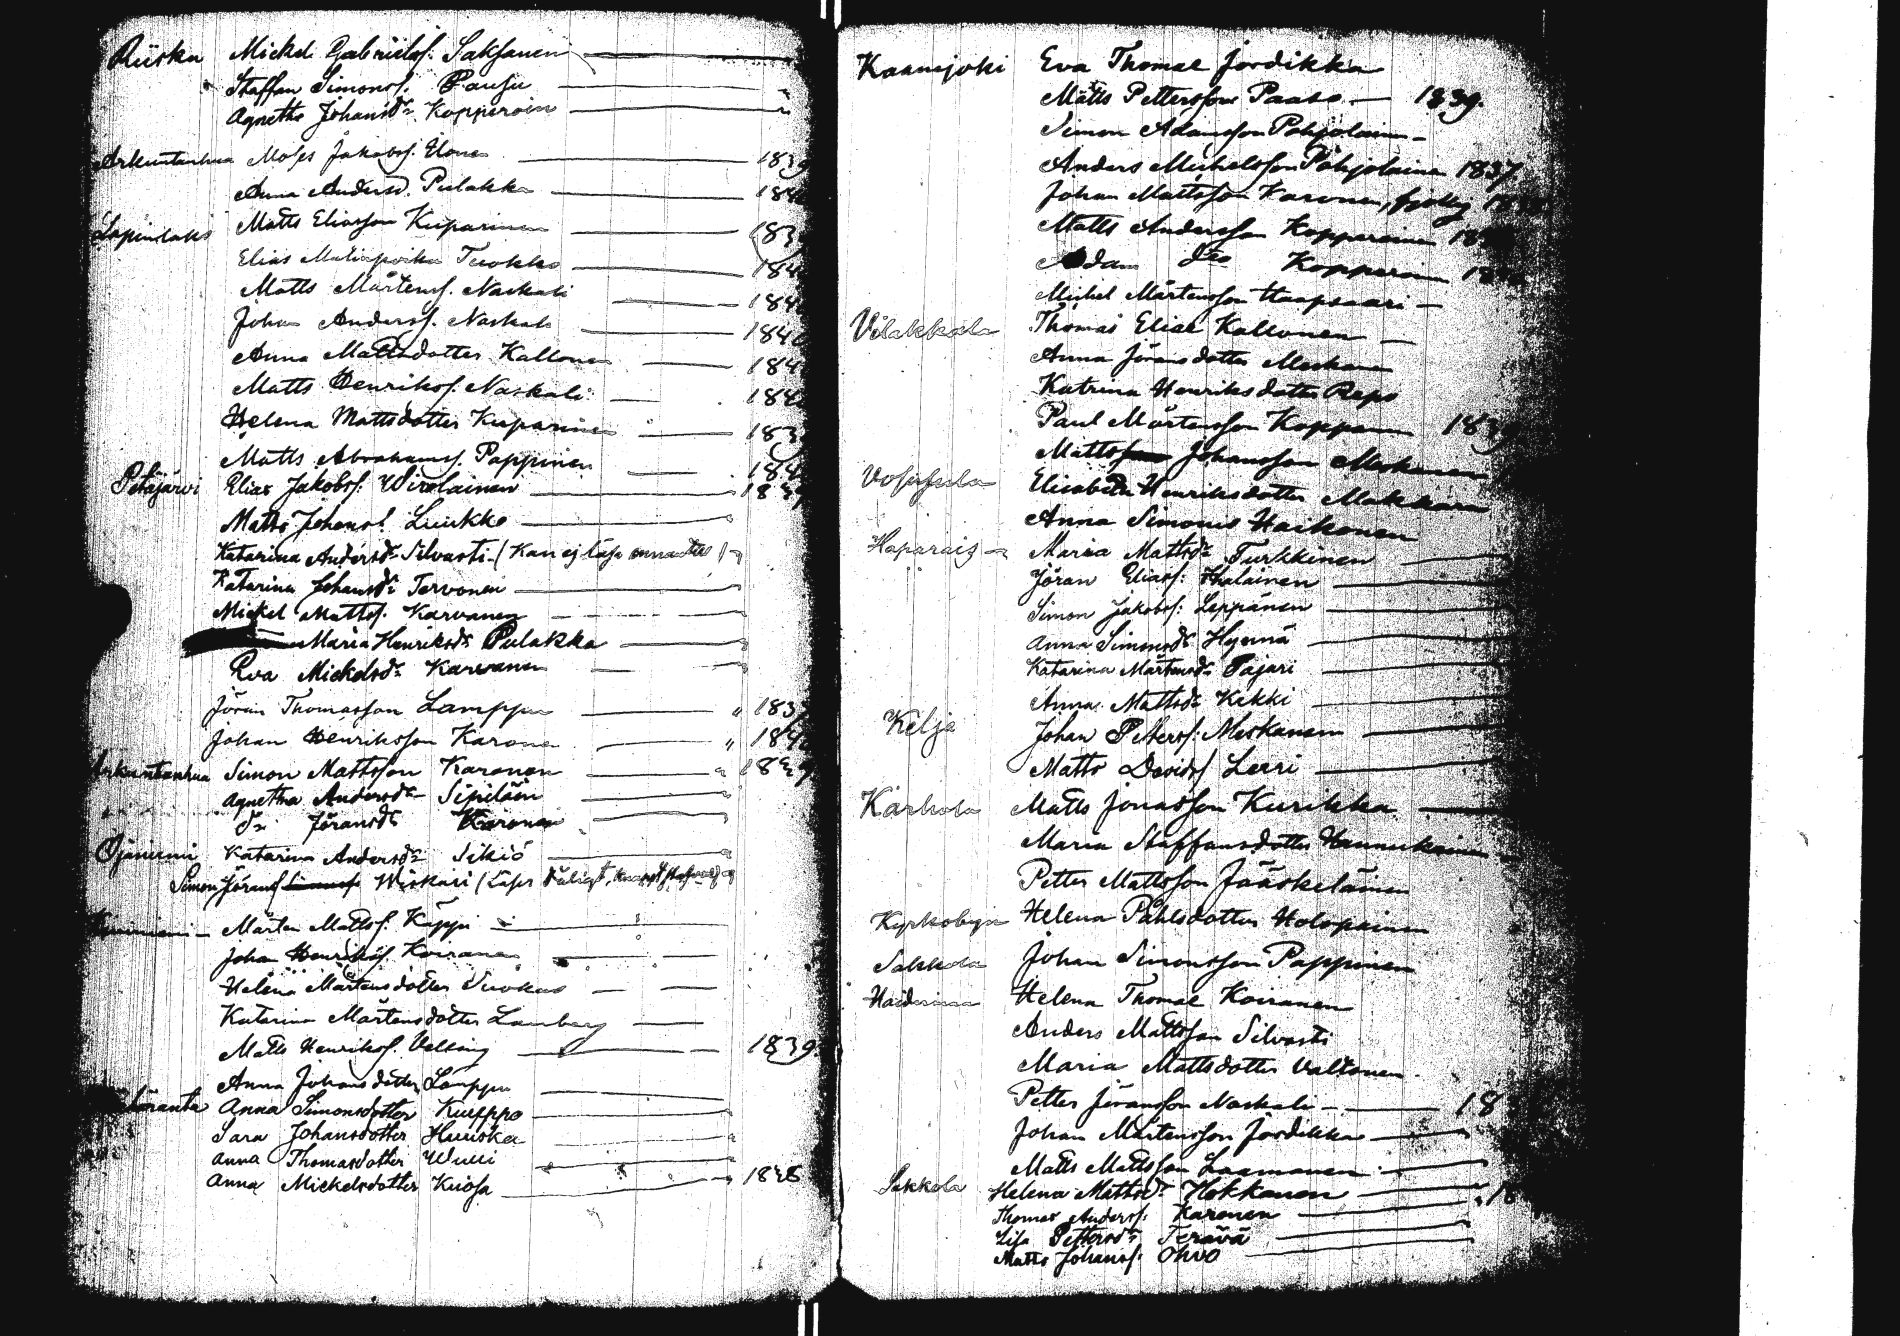 Riiska Mickel Gabrielss. Saksanen
Staffan Simonss. Pausu
Agnetha Johansdr Kopperoin
Arkuntanhua Moses Jakobss. Ilonen 1839
Anna Andersd. Pulakka 184
Lapinlaks Matts Eliasson Kuparinen 183
Elias Matinpoika Tuokko 184
Matts Mårtenss. Naskali 184
Johan Anderss. Naskali 184
Anna Mattsdotter Kallonen 184
Matts Henrikss. Naskali 184
Helena Mattsdotter Kuparinen 183
Matts Abrahamss. Pappinen 184
Petäjärvi Elias Jakobss: Wirolainen 1839
Matts Johanss. Luukko
Katarina Andersdr Silvasti (Kan ej läsa
Katarina Johansdr Tervonen
Mickel Mattss. Karvanen
Maria Henriksdr Pulakka
Eva Mickelsdr Karvanen
Jöran Thomasson Lamppu " 183
Johan Henriksson Karonen " 184
Arkuntanhua Simon Mattsson Karonen 1839
Agnetha Andersdr Sipiläin
Dr Jöransdr Karonen
Ojaniemi Katarina Andersdr Sikiö
Simon Jöranss Wiskari (Läser dåligt,
Mårten Mattss. Käppi
Johan Henrikss. Koiranen
Helena Mårtensdotter Suokas
Katarina Mårtensdotter Lamberg
Matts Henrikss. Velling 1839
Anna Johansdotter Lamppu
Anna Simonsdotter Kurppo
Sara Johansdotter Huuska
Anna Thomasdotter Wulli
Anna Mickelsdotter Kuosa 1838
Kaansjoki Eva Thomae Jordikka
Matts Pettersson Paaso 1839.
Simon Adamsson Pohjolainen
Anders Michelsson Pohjolainen 1837
Johan Mattsson Karonen, 18
Matts Andersson Kopperoinen 18
Adam Dso Kopperoin 18
Michel Mårtensson Haapsaari
Vilakkala Thomas Eliae Kallonen
Anna Jöransdotter Meskanen
Katrina Henriksdotter Repo
Paul Mårtensson Koppanen 1839
Matts Johansson Meskanen
Elisabeth Henriksdotter Makkara
Anna Simonis Haikonen
Haparais Maria Mattsdr Turkkinen
Jöran Eliass: Ihalainen
Simon Jakobss: Leppänen
Anna Simonsdr Hyennä
Katarina Mårtensdr Pajari
Anna Mattsdr Kekki
Kelja Johan Petterss: Meskanen
Matts Davidss Lerri
Karhola Matts Jonasson Kurikka
Maria Staffansdotter Hannukainen
Petter Mattsson Jääskeläinen
Kyrkobyn Helena Påhlsdotter Holopainen
Sakkola Johan Simonsson Pappinen
Helena Thomae Koiranen
Anders Mattsson Silvasti
Maria Mattsdotter Valtonen
Petter Jöransson Naskali 18
Johan Mårtensson Jordikka
Matts Mattsson Laamanen
Sakkola Helena Mattsdr Hokkanen 18
Thomas Anderss: Karonen
Lisa Pettersdr Terävä
Matts Johanss: Ohvo